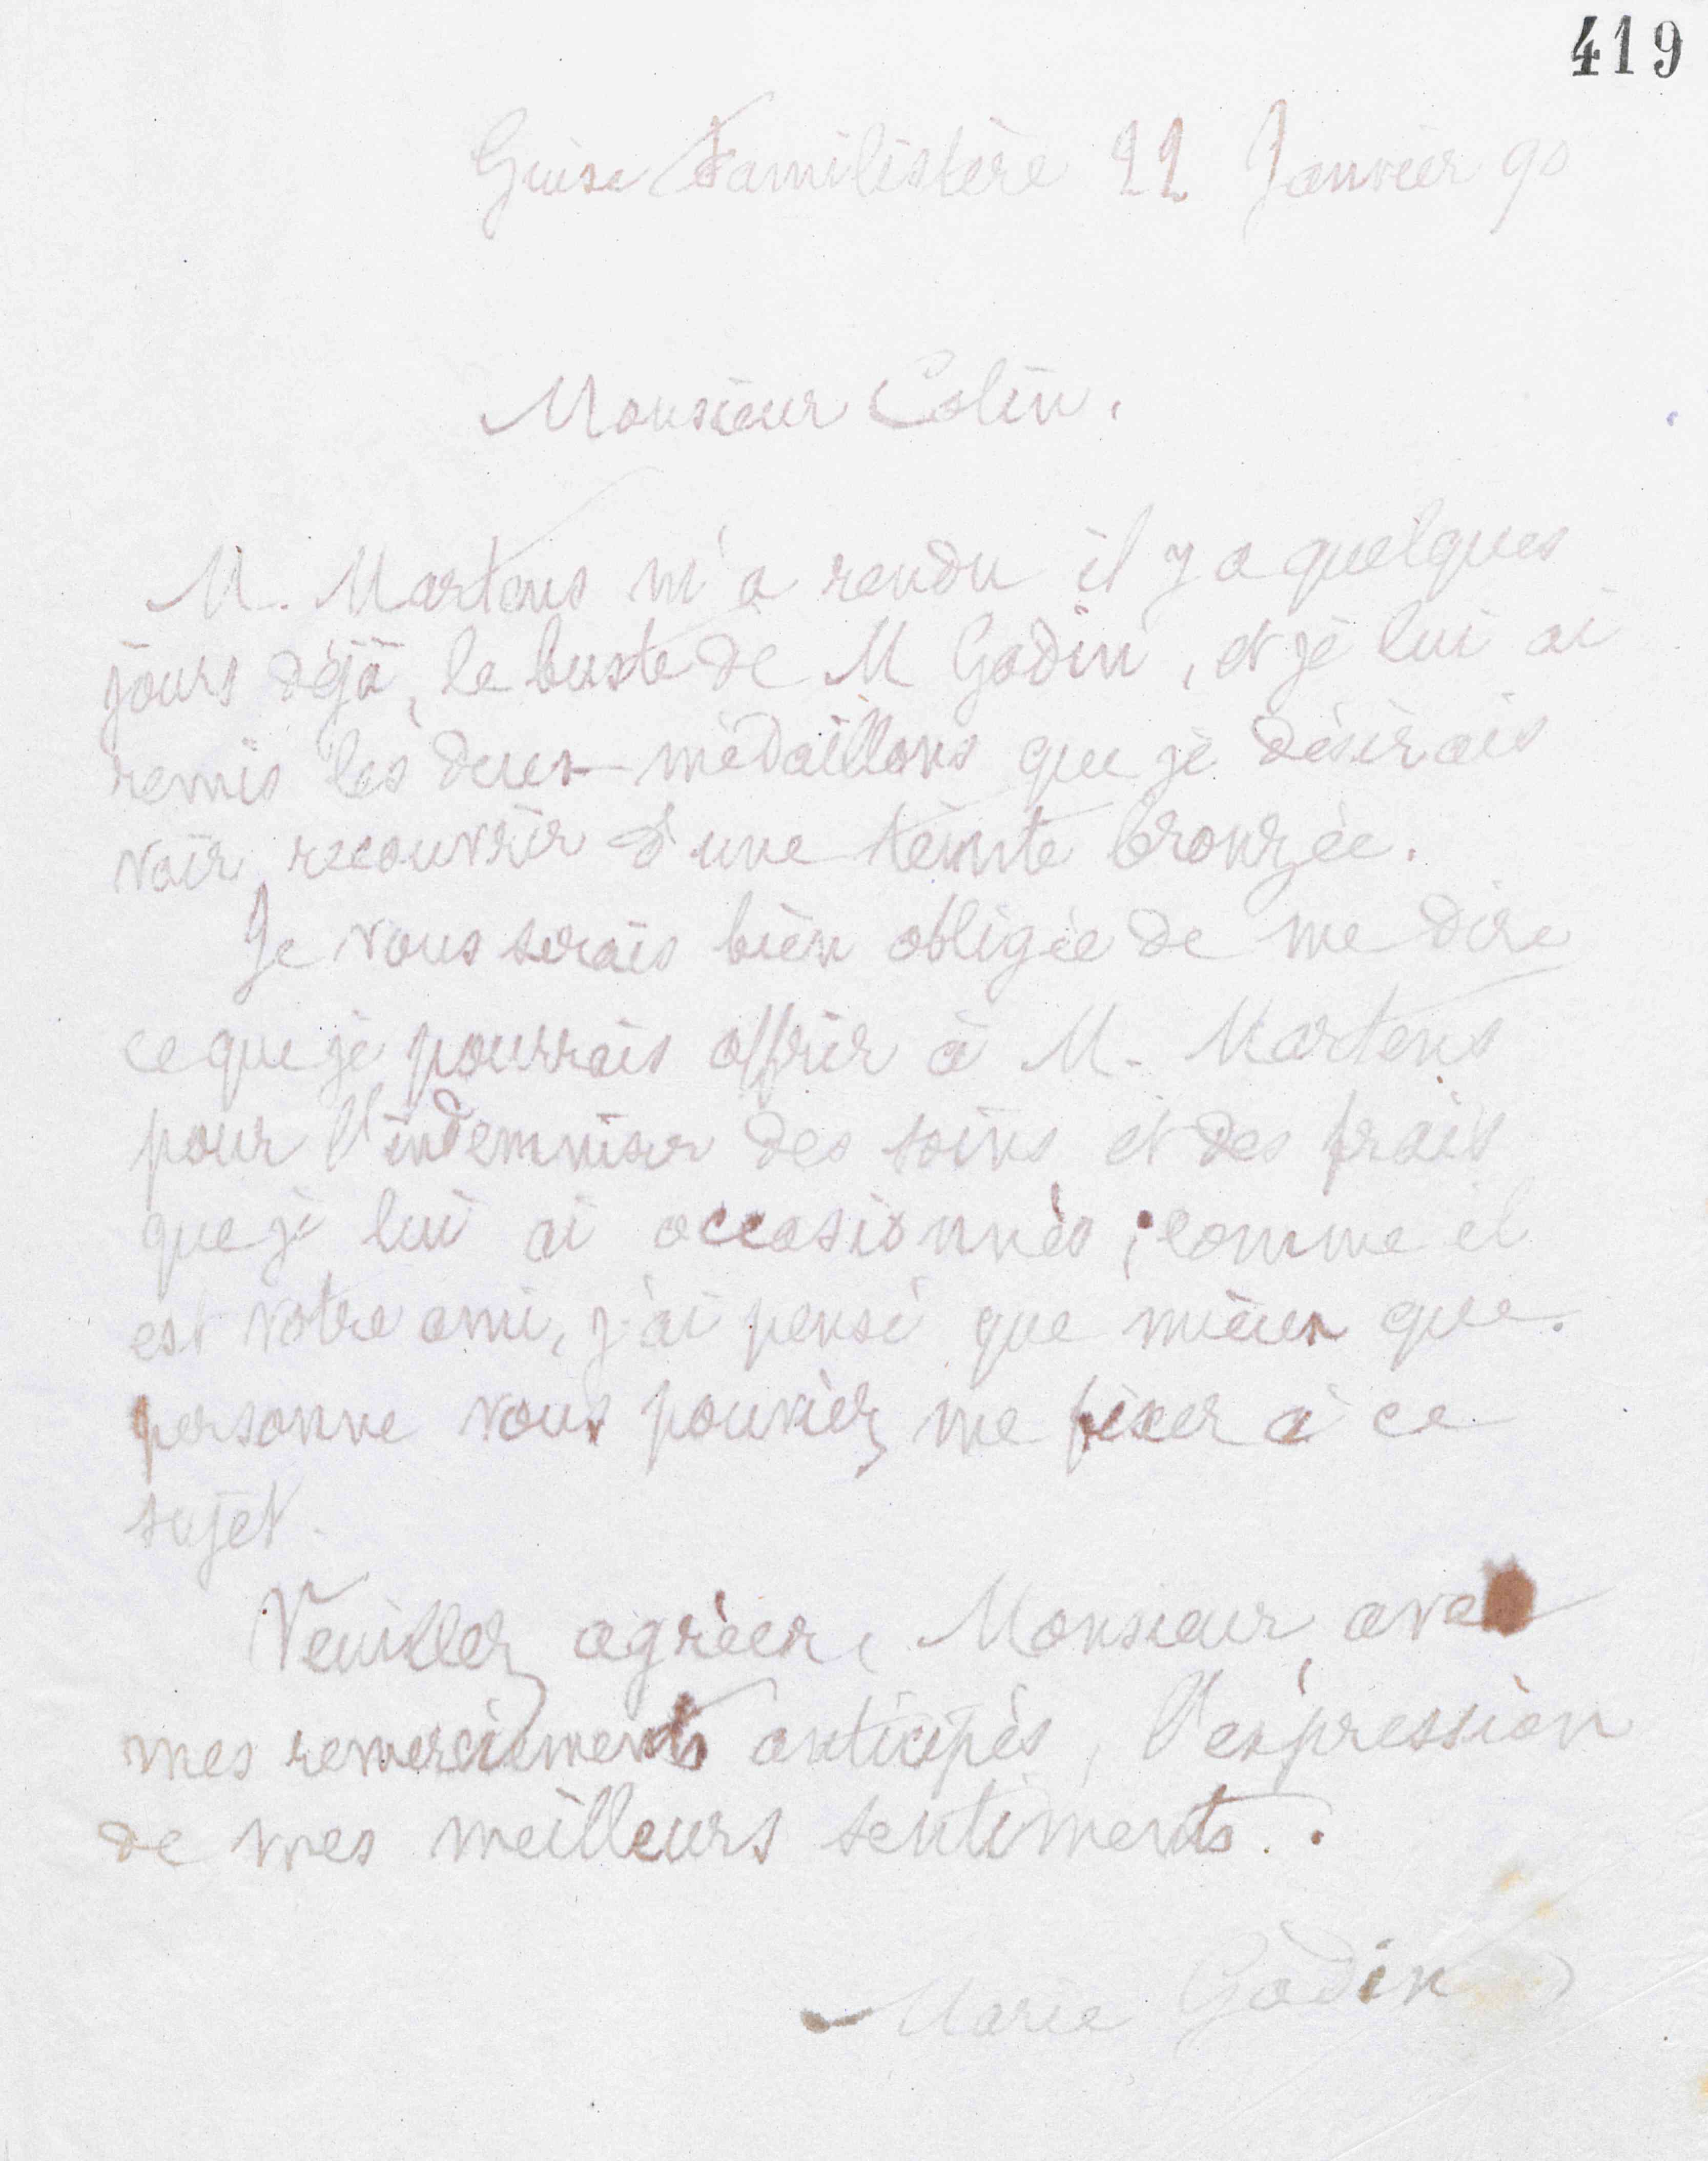 419
Guise Familistère 22 Janvier 90
Monsieur Colin,
M. Martens m'a rendu il y a quelques
jours déjà, le buste de M Godin, et je lui ai
remis les deux médaillons que je désirais
voir recouvrir d'une teinte bronzée.
Je vous serais bien obligée de me dire
ce que je pourrais offrir à M. Martens
pour l'indemniser des soins et des frais
que je lui ai occasionnés ; comme il
est votre ami, j'ai pensé que mieux que
personne vous pouviez me fixer à ce
sujet.
Veuillez agréer, Monsieur, avec
mes remerciements anticipés, l'expression
de mes meilleurs sentiments.
Marie Godin